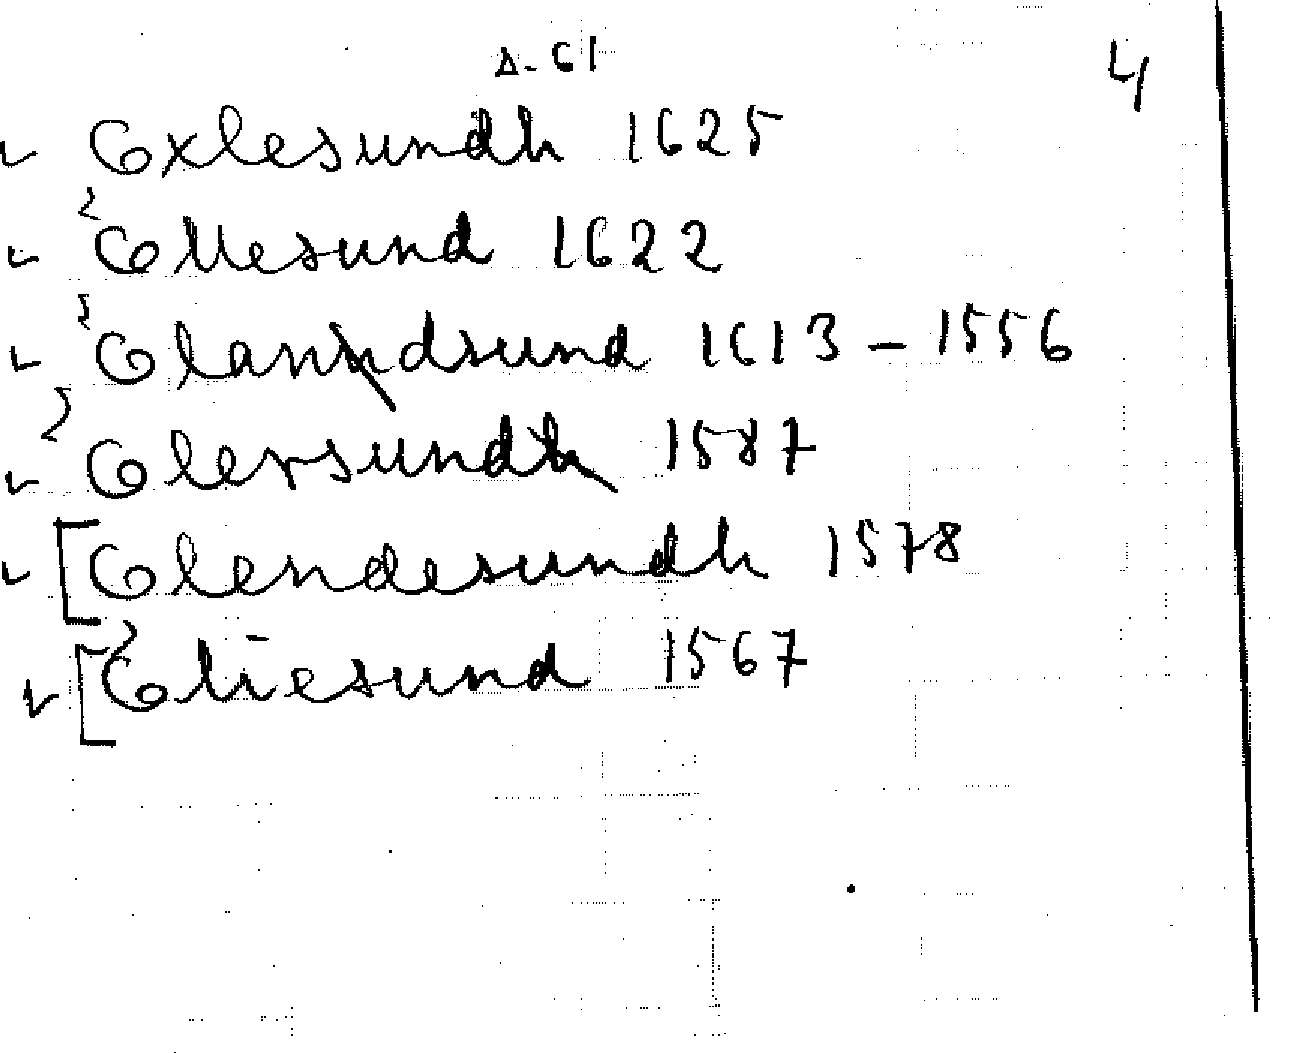 s. 61 4
Oxlesundh 1625
Ollesund 1622
Olanndsund 1613 – 1556
Olersundh 1587
[Olendesundh 1578
[Oliesund 1567